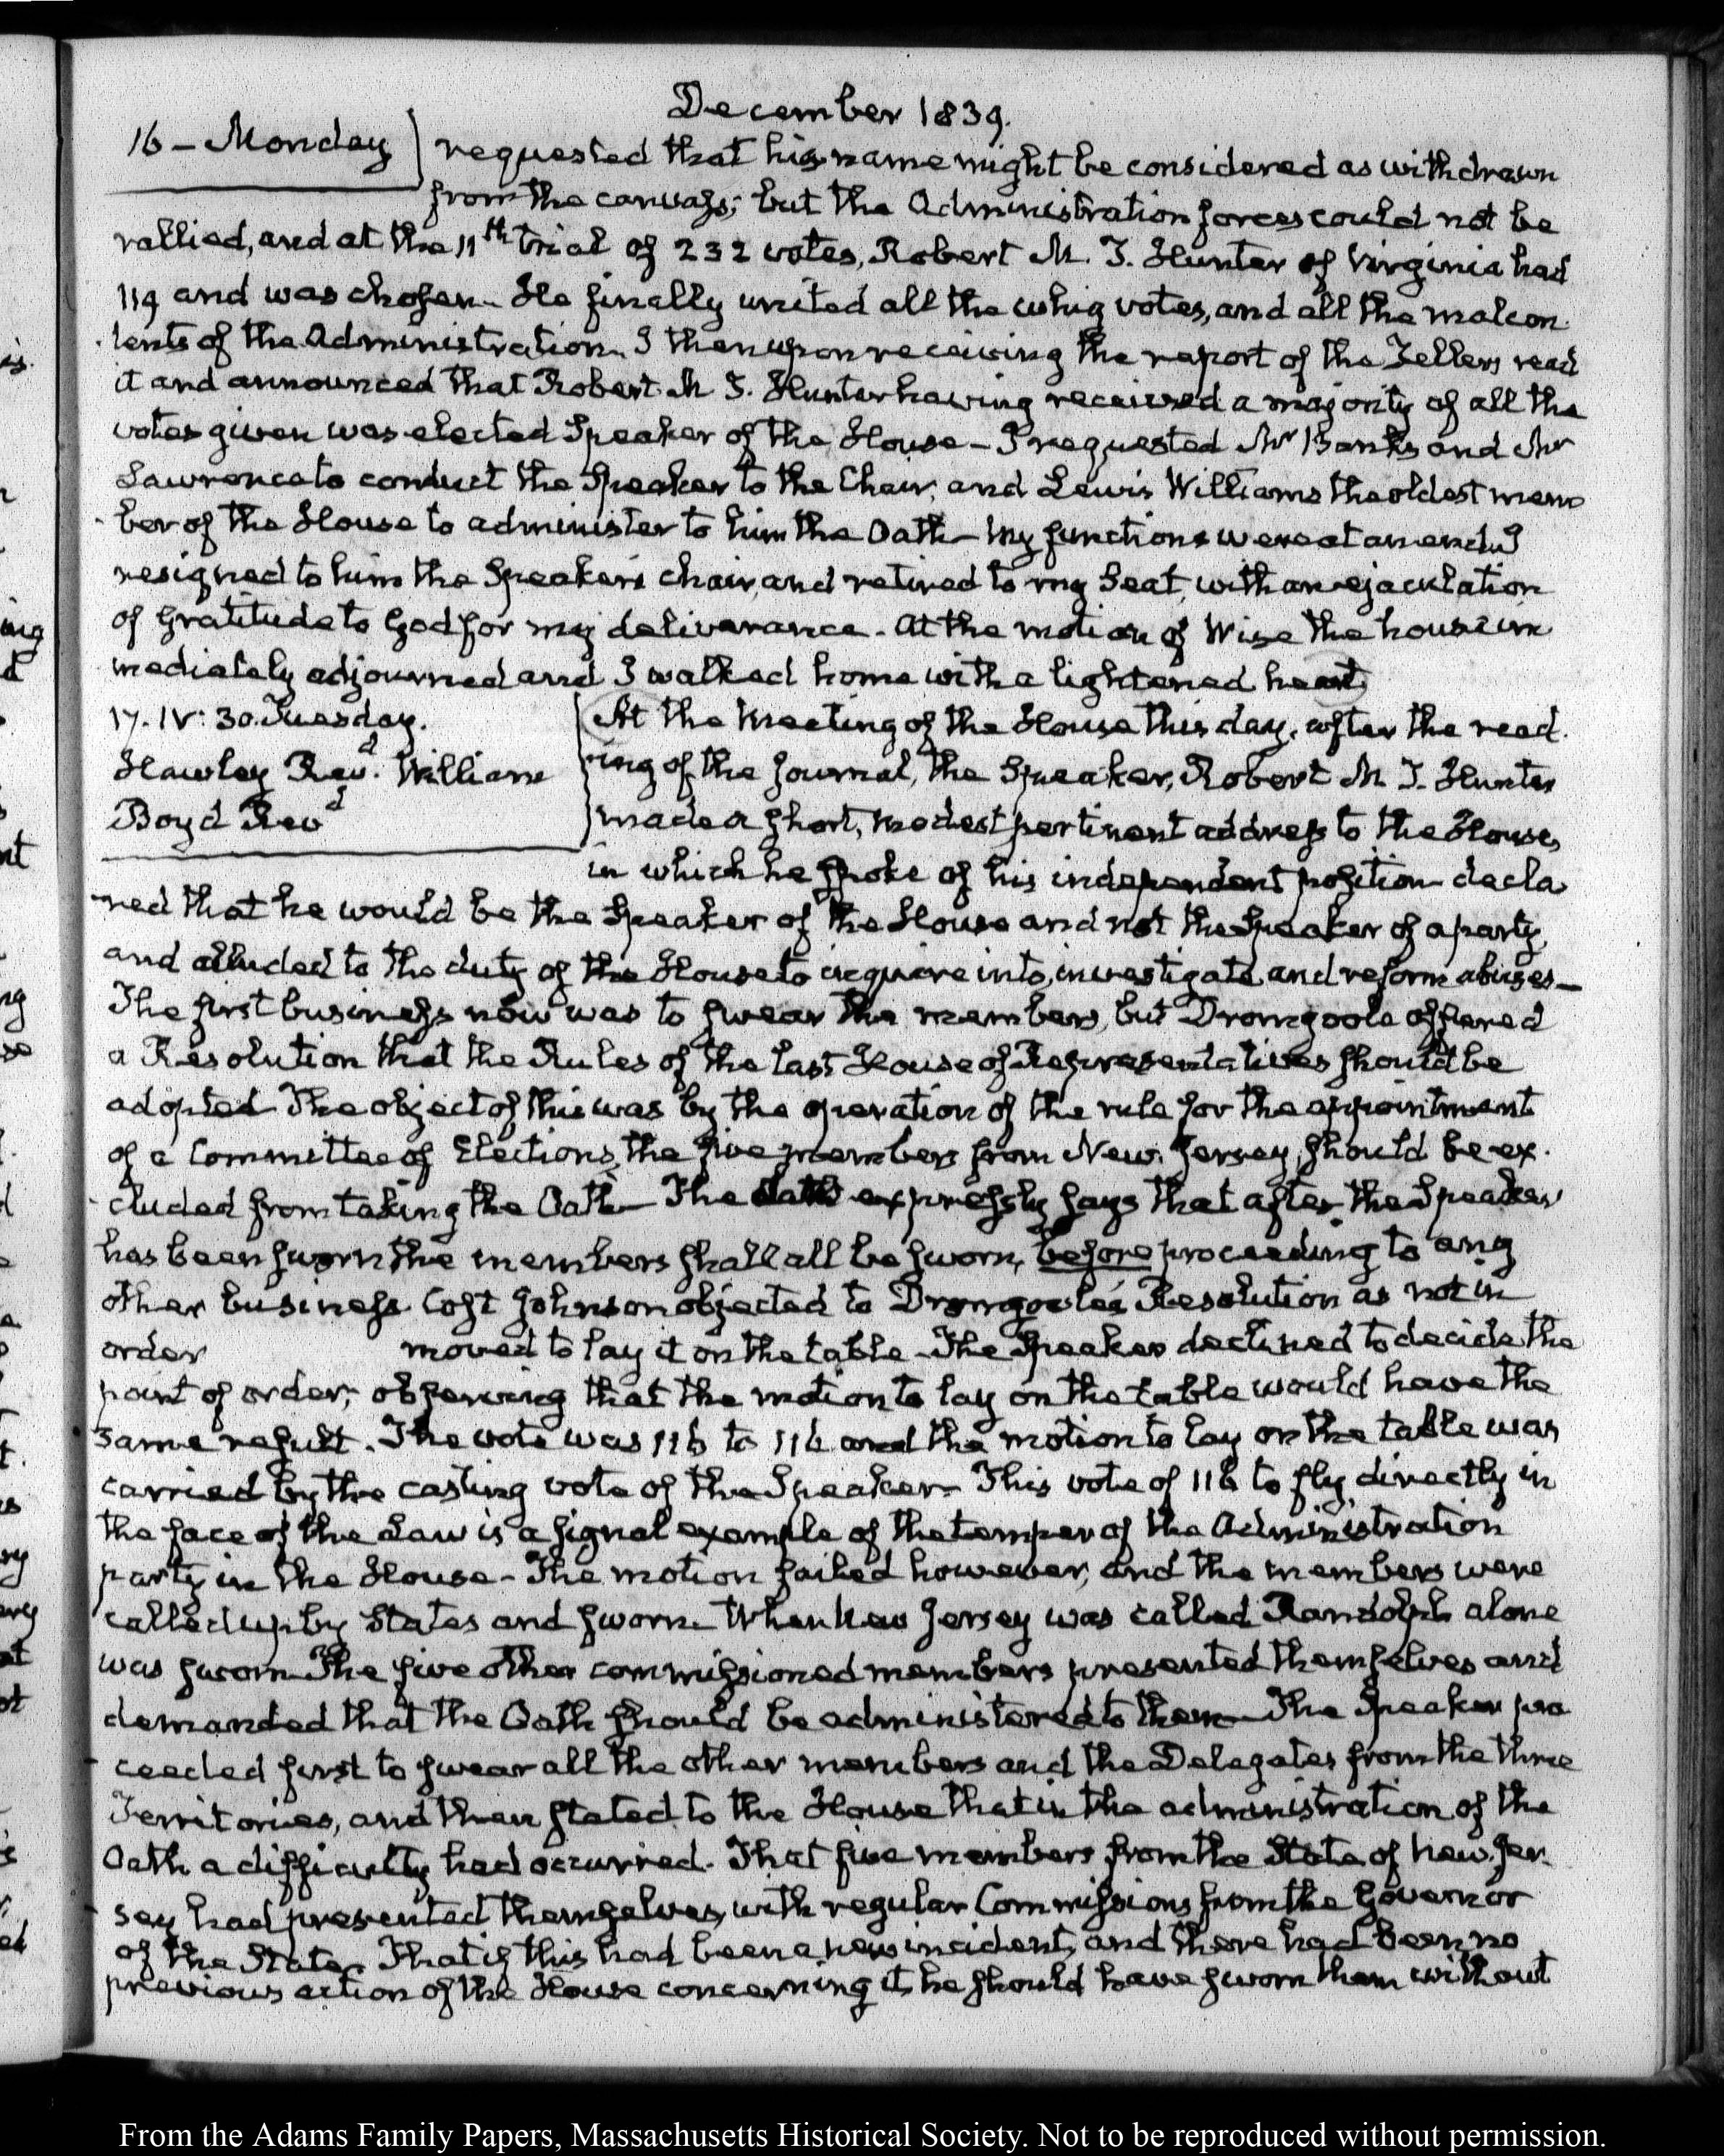 December 1839.
16 – Monday requested that his name might be considered as withdrawn
from the canvass; but the Administration forces could not be
rallied, and at the 11th trial of 232 votes, Robert M. T. Hunter of Virginia had
119 and was chosen. He finally united all the whig votes, and all the malcon
tents of the Administration. I then upon receiving the report of the Tellers read
it and announced that Robert M T. Hunter having received a majority of all the
votes given was elected Speaker of the House – I requested Mr Banks and Mr
Lawrence to conduct the Speaker to the Chair, and Lewis Williams the oldest mem
ber of the House to administer to him the Oath – My functions were at an end, I
resigned to him the Speaker's chair, and retired to my Seat, with an ejaculation
of gratitude to God for my deliverance. At the motion of Wise the house im
mediately adjourned and I walked home with a lightened heart,
17. IV: 30. Tuesday.
Hawley Revd. William
Boyd Revd
At the Meeting of the House this day, after the read
ing of the Journal, the Speaker, Robert M. T. Hunter
made a short, modest pertinent address to the House,
in which he spoke of his independent position decla
red that he would be the Speaker of the House and not the Speaker of a party,
and alluded to the duty of the House to inquire into, investigate and reform abuses –
The first business now was to swear the members, but Dromgoole offered
a Resolution that the Rules of the last House of Representatives should be
adopted. The object of this was by the operation of the rule for the appointment
of a Committee of Elections, the five members from New Jersey, should be ex
cluded from taking the Oath – The expressly says that after the Speaker
has been sworn the members shall all be sworn, before proceeding to any
other business. Cost Johnson objected to Dromgoole's Resolution as not in
order moved to lay it on the table – The Speaker declined to decide the
point of order; observing that the motion to lay on the table would have the
same result. The vote was 116 to 116 and the motion to lay on the table was
carried by the casting vote of the Speaker. This vote of 116 to fly directly in
the face of the Law is a signal example of the temper of the Administration
party in the House – The motion failed however, and the members were
called up by States and sworn. When New Jersey was called Randolph alone
was sworn. The five other commissioned members presented themselves and
demanded that the Oath should be administered to them – The Speaker pro
ceeded first to swear all the other members and the Delegates from the three
Territories, and then stated to the House that in the administration of the
Oath a difficulty had occurred. That five members from the State of New Jer
sey had presented themselves, with regular Commissions from the Governor
of the State. That if this had been a new incident, and there had been no
previous action of the House concerning it, he should have sworn them without
From the Adams Family Papers, Massachusetts Historical Society. Not to be reproduced without permission.